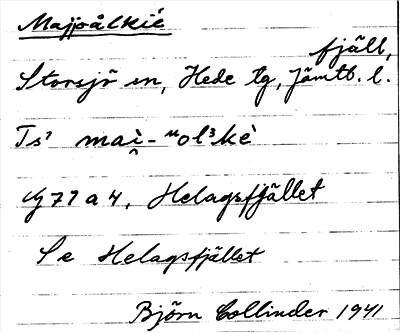 Majjoålkié
fjäll,
Storsjö sn, Hede tg, Jämtl. l.
Ts³ mai̯-ᵘol³kè
77 a 4, Helagsfjället
Se Helagsfjället
Björn Collinder 1941